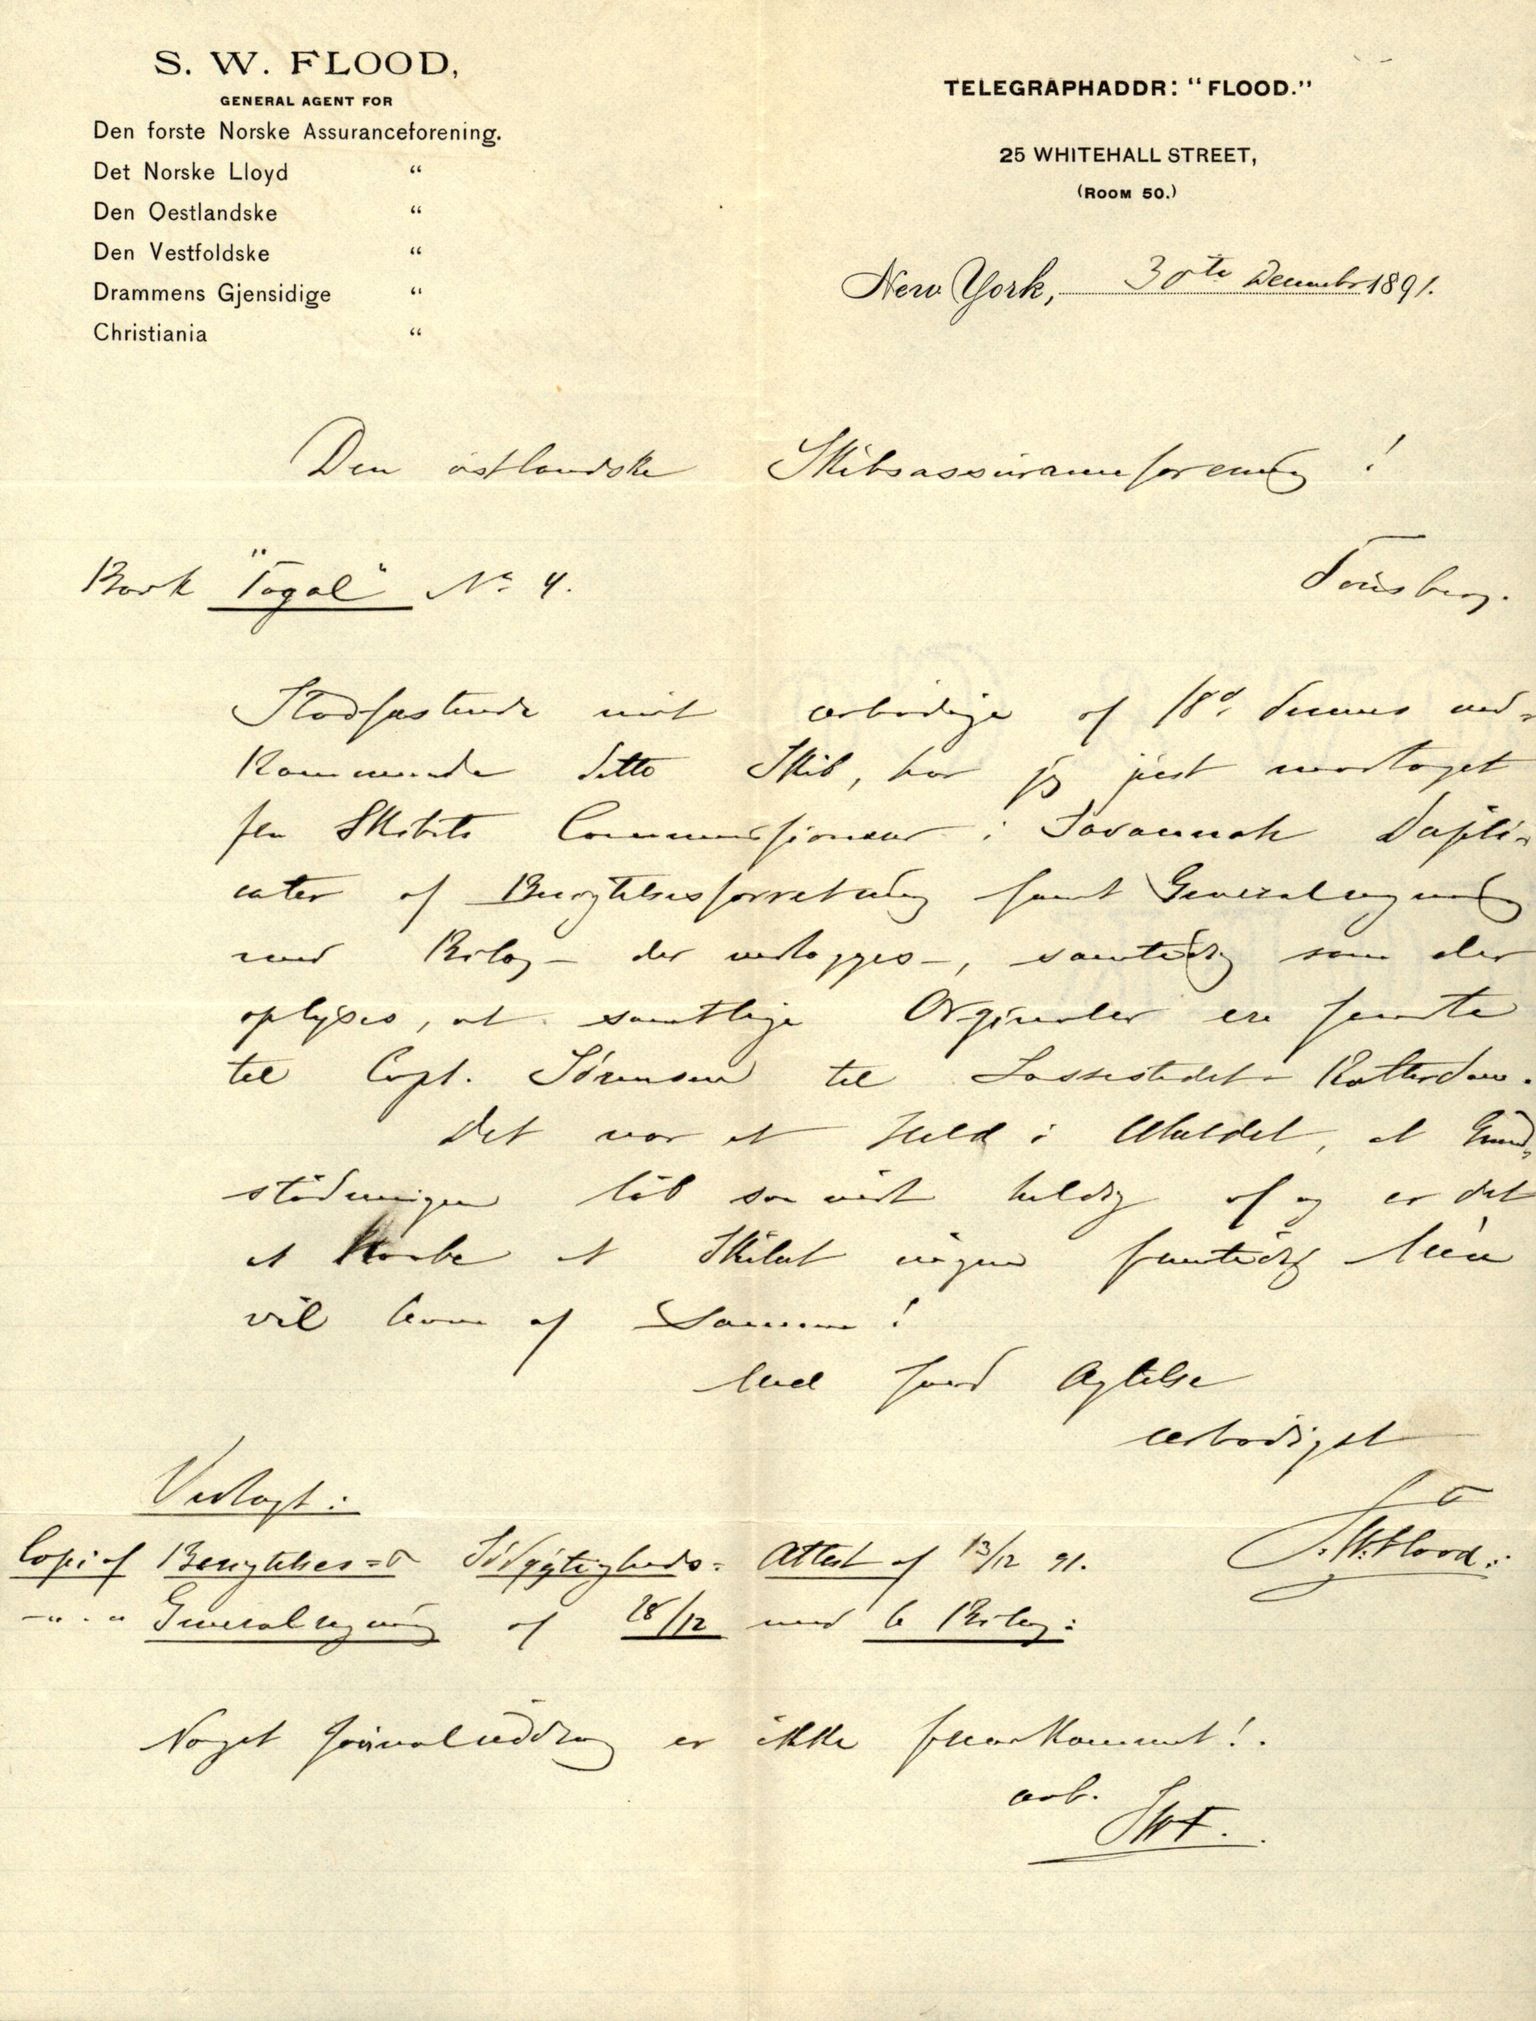 S. W. FLOOD,
GENERAL AGENT FOR
Den forste Norske Assuranceforening.
Det Norske Lloyd “
Den Oestlandske “
Den Vestfoldske “
Drammens Gjensidige “
Christiania “
TELEGRAPHADDR: “FLOOD.”
25 WHITEHALL STREET,
(ROOM 50.)
New York, 30te December 1891.
Den østlandske Skibsassuranceforening !
Tønsberg.
Bark "Fogal" No 4.
Stadfæstende mit ærbødige af 18d dennes ved-
kommende ditto Skib, har jeg just modtaget
fra Skibets Commissionær i Savannah Dupli-
cater af Besigtelsesforretning samt Generalregning
med Bilag - der vedlægges -, samtidig som der
oplyses, at samtlige Orginaler ere sendte
til Capt. Sørensen til Lossestedet Rotterdam.
Det var et Held i Uheldet, at Grund-
stødningen løb saavidt heldig af og er det
at haabe at Skibet ingen fremtidig Mèn
vil have af Samme !
Med sand Agtelse
ærbødigst
S. W. Flood.
Vedlagt :
Copi af Besigtelses= & Sødygtigheds= Attest af 13/12 91.
-"-"- Generalregning af 18/12 med 6 Bilag:
Noget Journaluddrag er ikke fremkommet !.
ærb.
SWF.